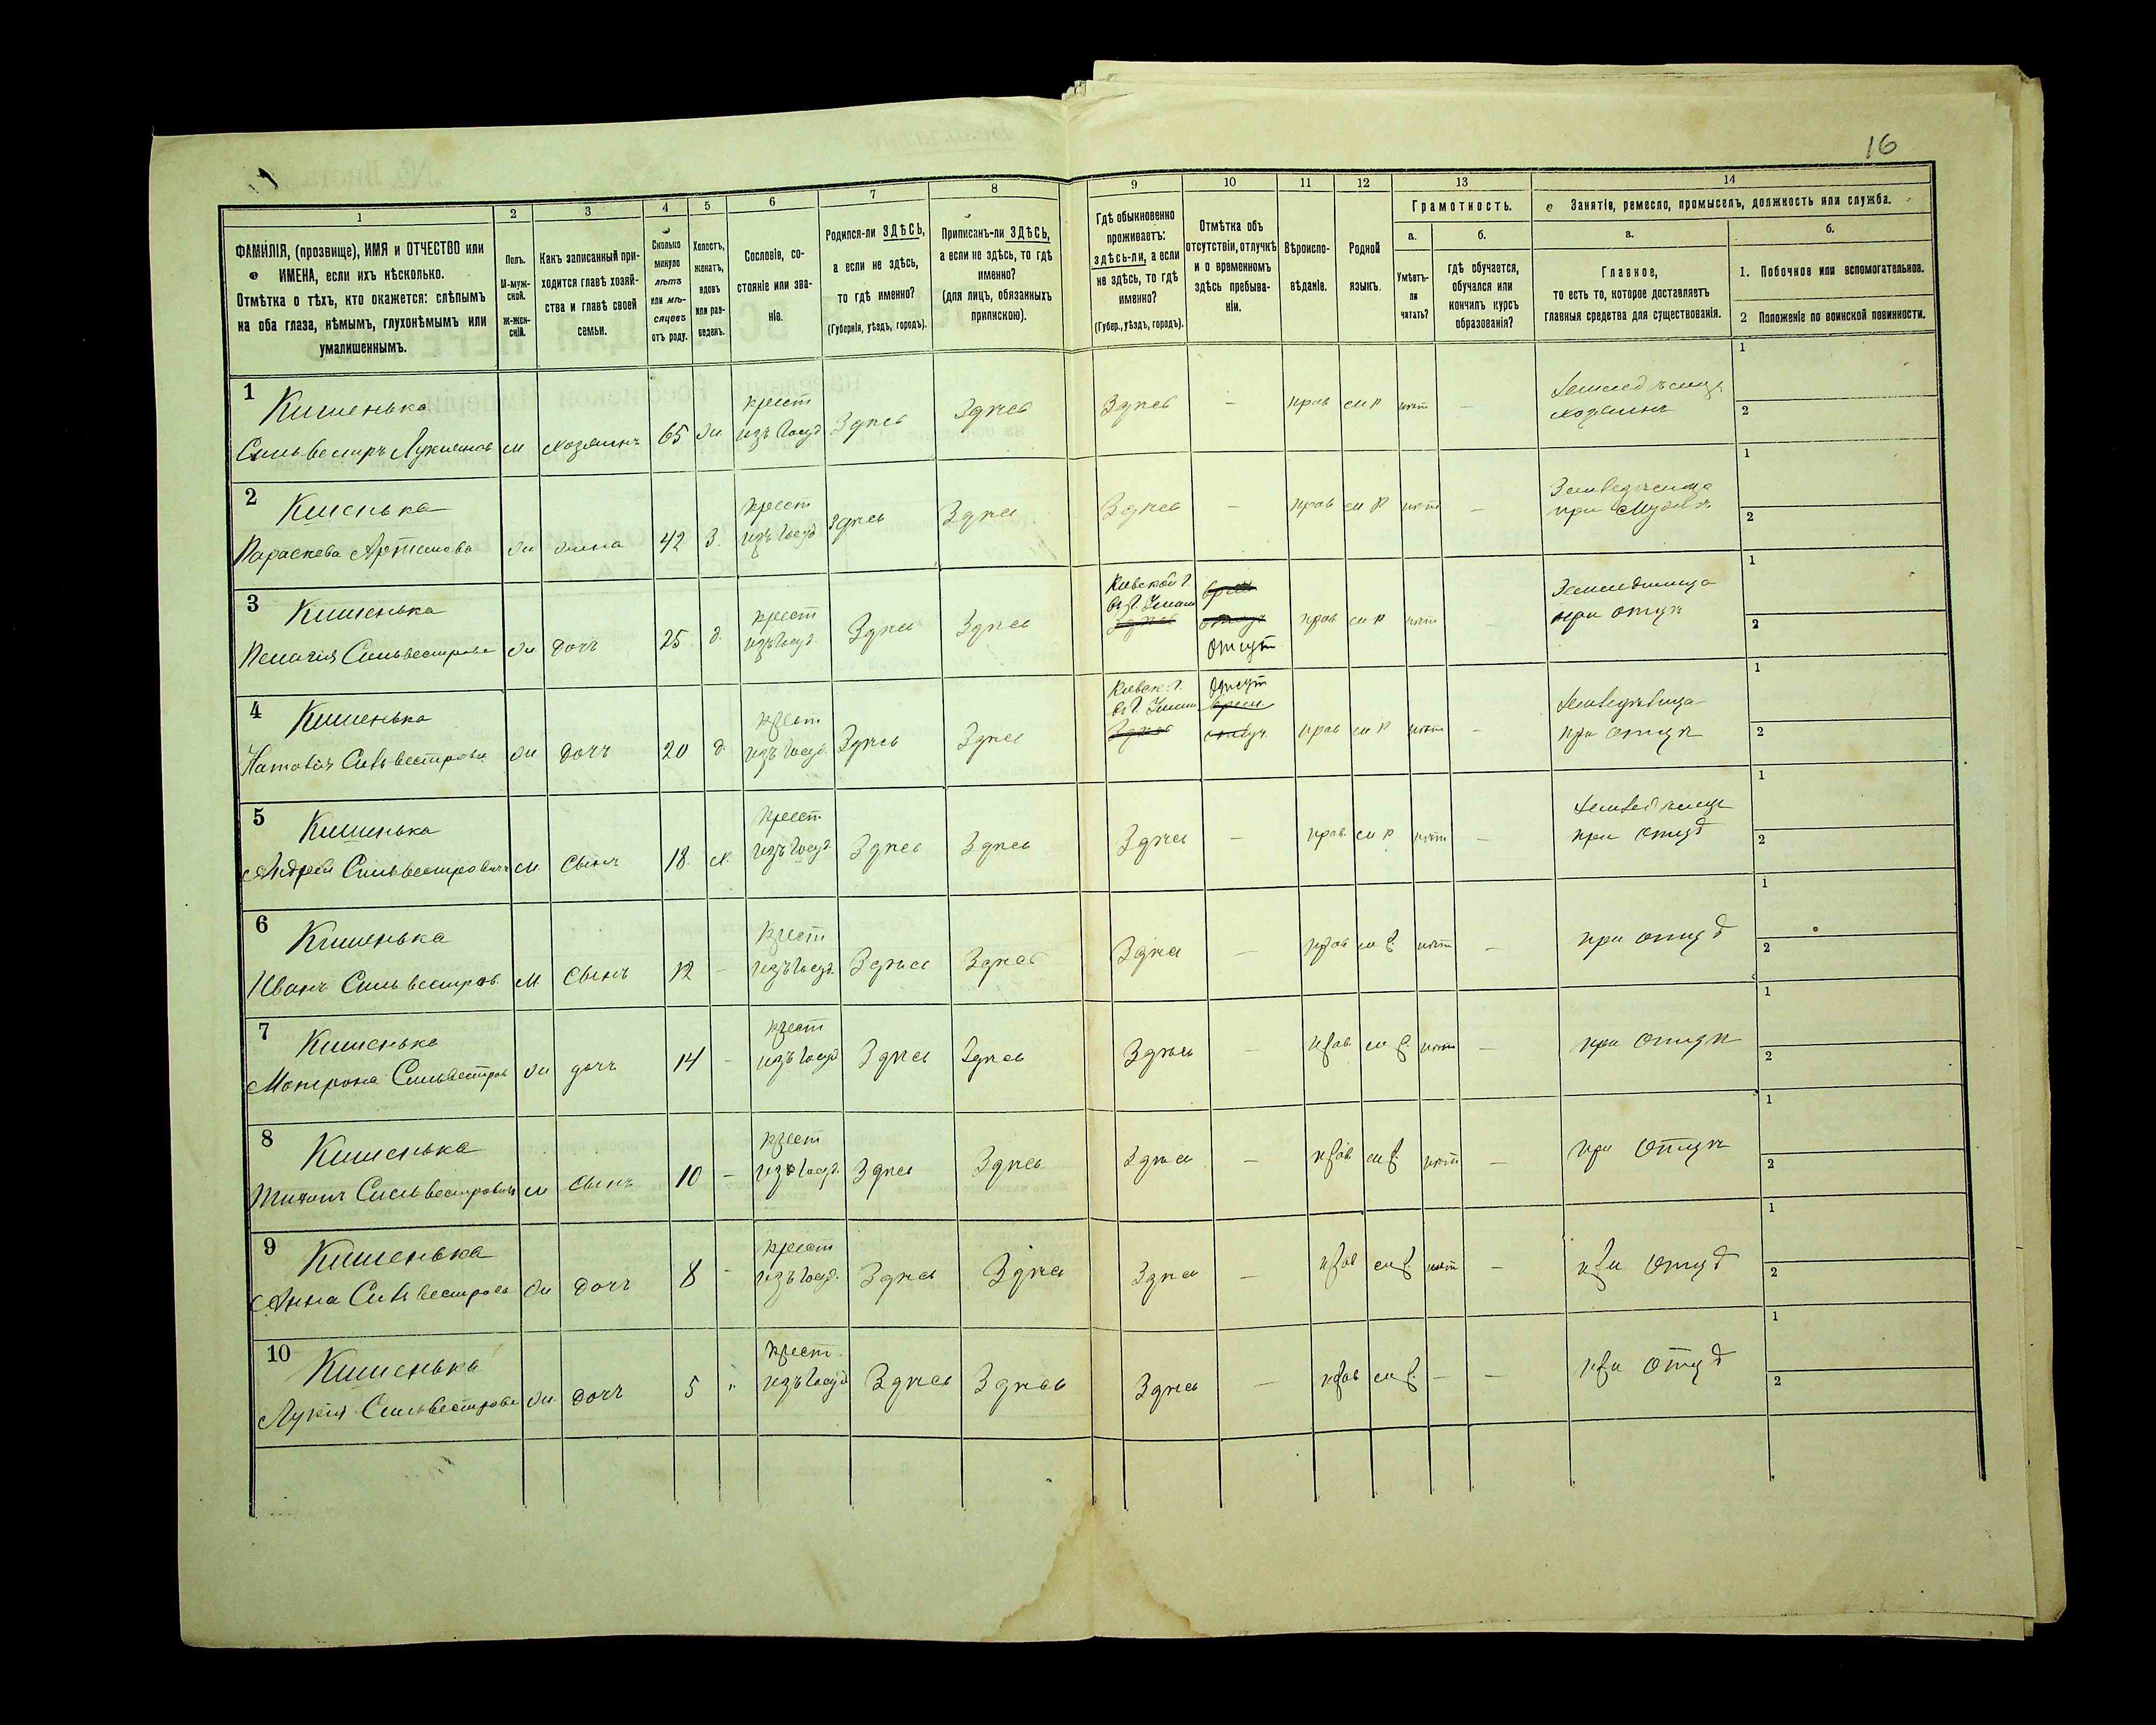 16
1
2
3
4
5
6
7
8
9
10
11
12
13
14
ФАМИЛІЯ, (прозвище), ИМЯ и ОТЧЕСТВО или
ИМЕНА, если ихъ нѣсколько.
Отмѣтка о тѣхъ, кто окажется: слѣпымъ
на оба глаза, нѣмымъ, глухонѣмымъ или
умалишеннымъ.
Полъ.
М-муж-
ской.
Ж-жен-
скій.
Какъ записанный при-
ходится главѣ хозяй-
ства и главѣ своей
семьи.
Сколько
минуло
лѣтъ
или мѣ-
сяцевъ
отъ роду.
Холостъ,
женатъ,
вдовъ
или раз-
веденъ.
Сословіе, со-
стояніе или зва-
ніе.
Родился-ли ЗДѢСЬ,
а если не здѣсь,
то гдѣ именно?
(Губернія, уѣздъ, городъ).
Приписанъ-ли ЗДѢСЬ,
а если не здѣсь, то гдѣ
именно?
(для лицъ, обязанныхъ
припискою).
Гдѣ обыкновенно
проживаетъ:
здѣсь-ли, а если
не здѣсь, то гдѣ
именно?
(Губер., уѣздъ, городъ).
Отмѣтка объ
отсутствіи, отлучкѣ
и о временномъ
здѣсь пребыва-
ніи.
Вѣроиспо-
вѣданіе.
Родной
языкъ.
Грамотность.
а.
Умѣетъ-
ли
читать?
б.
гдѣ обучается,
обучался или
кончилъ курсъ
образованія?
Занятія, ремесло, промыселъ, должность или служба.
а.
Главное,
то есть то, которое доставляетъ
главныя средства для существованія.
б.
1. Побочное или вспомогательное.
2 Положеніе по воинской повинности.
1 Кишенька крест Здѣсь Здѣсь Здѣсь - прав м р нѣт - 1
Сильвестръ Лукьянов м хозяинъ 65 ж изъ Госуд хозяинъ 2
2 Кишенька крест Здѣсь Здѣсь Здѣсь - прав м р нѣт - 1
Параскева Артемова ж жена 42 З. изъ Госуд при мужѣ 2
3 Кишенька крест Здѣсь Здѣсь Кіевской г. прав м р нѣт 1
Пелагія Сильвестрова ж дочь 25 д. изъ Госуд. Здѣсь отсут при отцѣ 2
4 Кишенька крест Здѣсь Здѣсь Кіевск. г. отсут прав м р нѣт - 1
Наталія Сильвестрова ж дочь 20 д. изъ Госуд. Здѣсь при отцѣ 2
5 Кишенька крест Здѣсь Здѣсь Здѣсь - прав. м р нѣт - 1
Андрей Сильвестровичъ м сынъ 18 х. изъ Госуд. при отцѣ 2
6 Кишенька крест Здѣсь Здѣсь Здѣсь - прав м р. нѣт - при отцѣ 1
Иванъ Сильвестров. м сынъ 12 - изъ Госуд. 2
7 Кишенька крест Здѣсь Здѣсь Здѣсь - прав м р. нѣт - при отцѣ 1
Матрона Сильвестров ж дочь 14 - изъ Госуд 2
8 Кишенька крест Здѣсь Здѣсь Здѣсь - прав м р. нѣт - при отцѣ 1
Сильвестровичъ м сынъ 10 - изъ Госуд. 2
9 Кишенька крест Здѣсь Здѣсь Здѣсь - прав м р. нѣт - при отцѣ 1
Анна Сильвестрова ж дочь 8 - изъ Госуд. 2
10 Кишенька крест. Здѣсь Здѣсь Здѣсь - прав м р. - - при отцѣ 1
Лукія Сильвестрова ж. дочь 5 " изъ Госуд 2